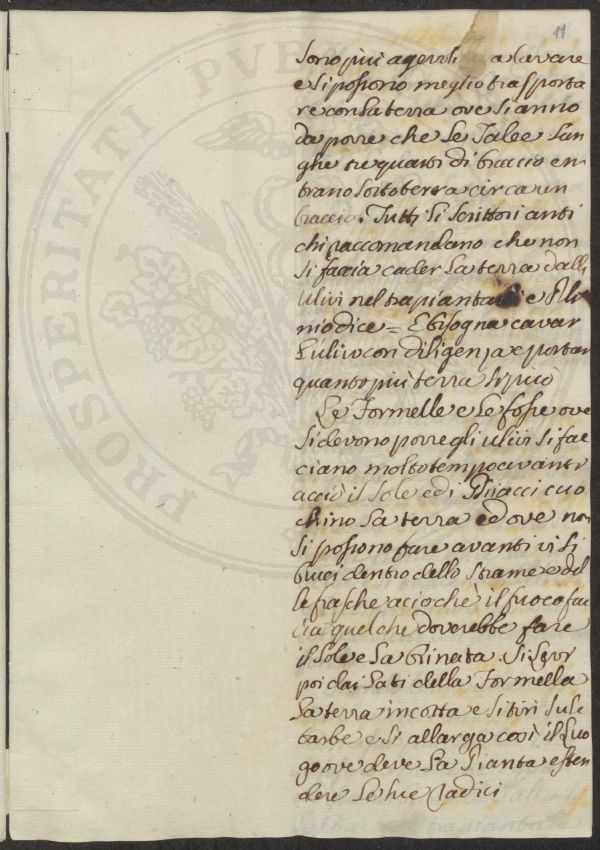 11
sono piu agevoli a cavare
e si possono meglio trasporta
re con la terra ove si anno
da porre che le Talee lun
ghe tre quarti di braccio en
trano sotto terra circa un
braccio. Tutti li scrittori anti
chi raccomandano che non
si faccia cader la terra dalli
ulivi nel trapiantarli e Pli
nio dice = E bisogna cavar
l'ulivo con diligenza e portar
quanto piu terra si può
Le Formelle e le fosse ove
si devono porre gli ulivi si fac
ciano molto tempo avanti
acciò il sole ed i Diacci cuo
chino la terra ed ove non
si possono fare avanti vi si
bruci dentro dello strame e del
le frasche acioche il fuoco fac
cia quel che doverebbe fare
il sole e la brinata. Si
poi dai lati della Formella
la terra incotta e si tiri sule
barbe e si allarga così il luo
go ove deve la Pianta esten
dere le sue radici
PROSPERITATI PVB